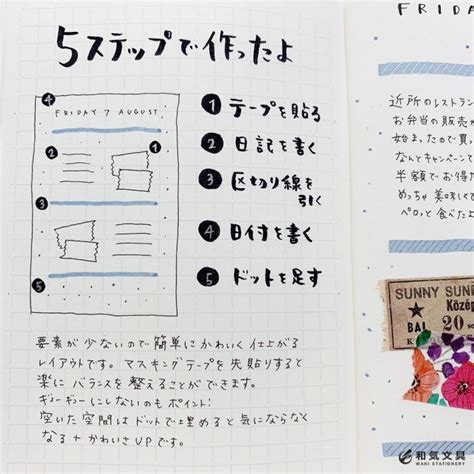 5ステップで作ったよ
④
FRIDAY 7 AUGUST
②
①
③
⑤
① テープを貼る
② 日記を書く
③ 区切り線を
引く
④ 日付を書く
⑤ ドットを足す
要素が少ないので簡単にかわいく仕上がる
レイアウトです。マスキングテープを先貼りすると
楽にバランスを整えることができます。
ギューギューにしないのもポイント!
空いた空間はドットで埋めると気にならなく
なる+かわいさUPです。
FRIDA
近所のレストラン
お弁当の販売が
始まったので買っ
なんとキャンペーンで
半額でお得だ
めっちゃ美味しくて
ペロっと食べた
SUNNY SUND
Közép
BAL
20
和気文具
WAKI STATIONERY